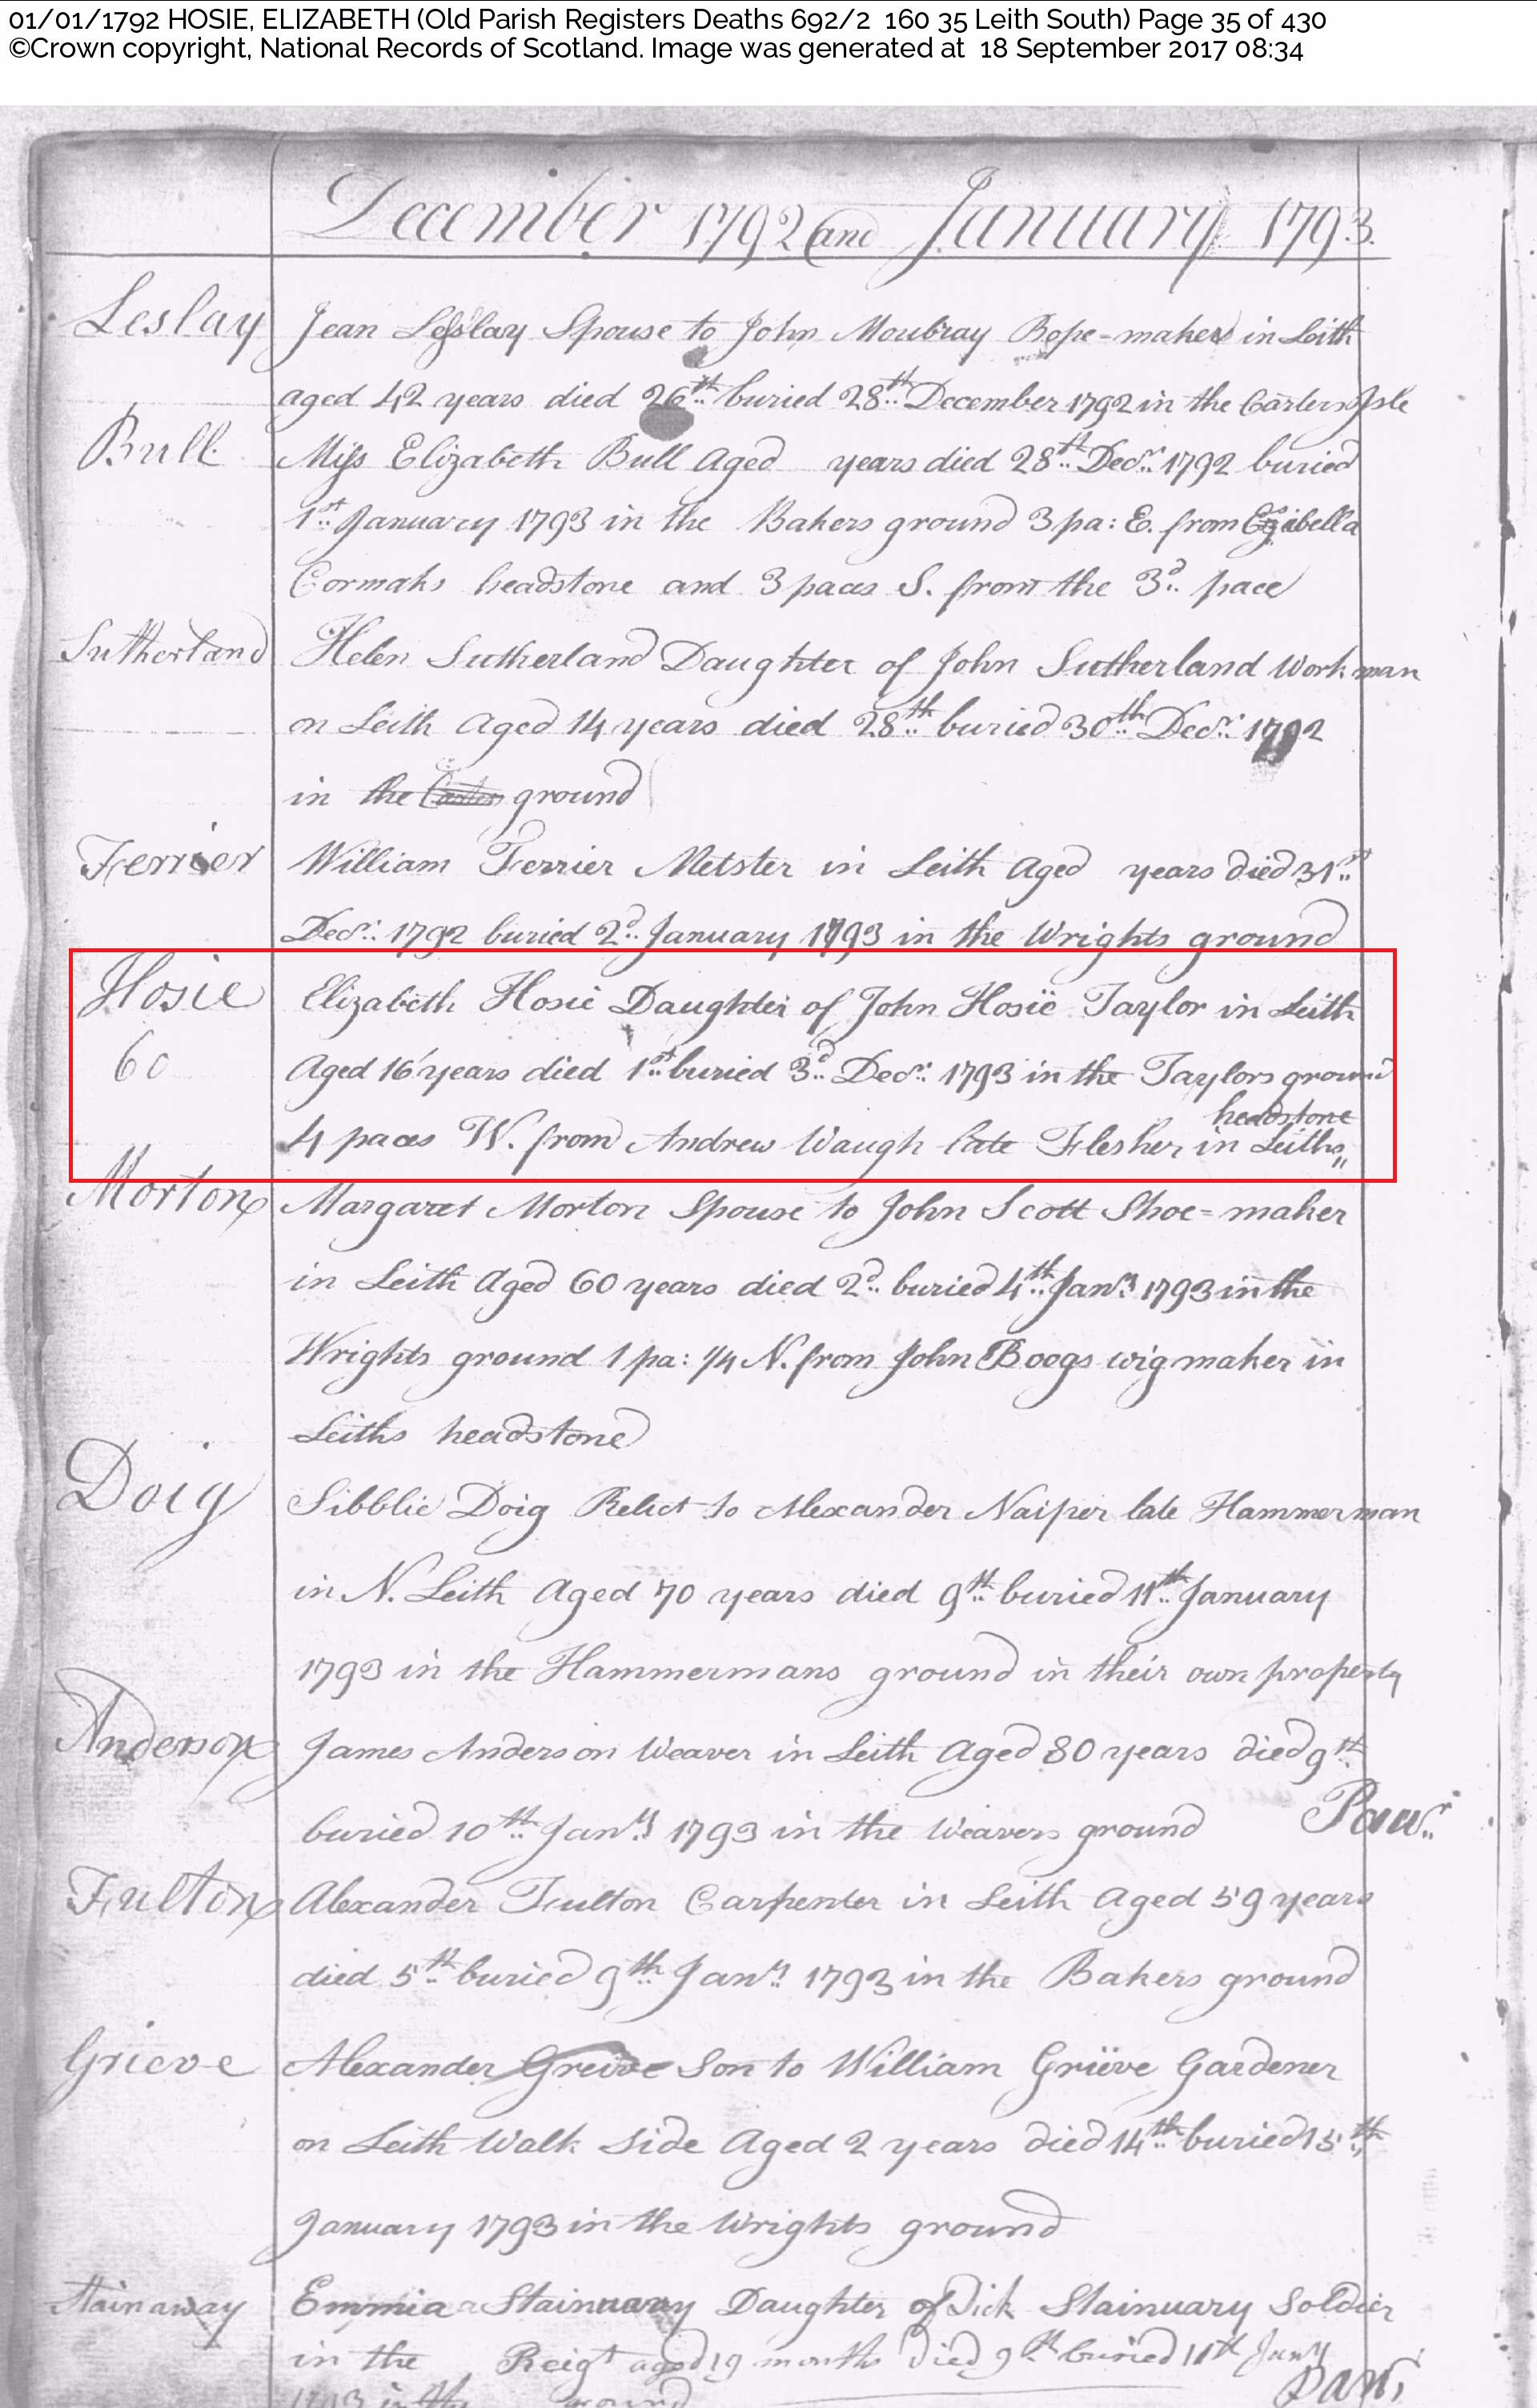 01/01/1792 HOSIE, ELIZABETH (Old Parish Registers Deaths 692/2 160 35 Leith South) Page 35 of 430
©Crown copyright, National Records of Scotland. Image was generated at 18 September 2017 08:34
December 1792 and January 1793
Leslay Jean Leslay Spouse to John Moubray Rope-maker in Leith
aged 42 years died 26th buried 28th December 1792 in the Carters Isle
Bull Miss Elizabeth Bull Aged years died 28th Decr: 1792 buried
1st January 1793 in the Bakers ground 3 pa: E. from
Cormaks headstone and 3 paces S. from the 3d pace
Sutherland Helen Sutherland Daughter of John Sutherland Workman
on Leith Aged 14 years died 28th buried 30th Decr: 1792
in the Carters ground
Ferrier William Ferrier Metster in Leith Aged years died 31st
Decr: 1792 buried 2d January 1793 in the Wrights ground
Hosie Elizabeth Hosie Daughter of John Hosie Taylor in Leith
60 Aged 16 years died 1st buried 3d Decr: 1793 in the Taylors ground
headstone
4 paces W. from Andrew Waugh late Flesher in Leiths
Morton Margaret Morton Spouse to John Scott Shoe=maker
in Leith Aged 60 years died 2d buried 4th Jany 1793 in the
Wrights ground 1 pa: 1/4 N. from John Boogs wigmaker in
Leiths headstone
Doig Sibblie Doig Relict to Alexander Naiper late Hammerman
in N. Leith Aged 70 years died 9th buried 11th January
1793 in the Hammermans ground in their own property
Anderson James Anderson Weaver in Leith Aged 80 years died 9th
buried 10th Jany 1793 in the Weavers ground
Fulton Alexander Fulton Carpenter in Leith Aged 59 years
died 5th buried 9th Jany 1793 in the Bakers ground
Grieve Alexander Greive Son to William Grieve Gardener
on Leith Walk Side Aged 2 years died 14th buried 15th
January 1793 in the Wrights ground
Stainaway Emmia Stainuary Daughter of Dick Stainuary Soldier
in the Reigt aged 19 months died 9th buried 11th Jany
1793 in the ground